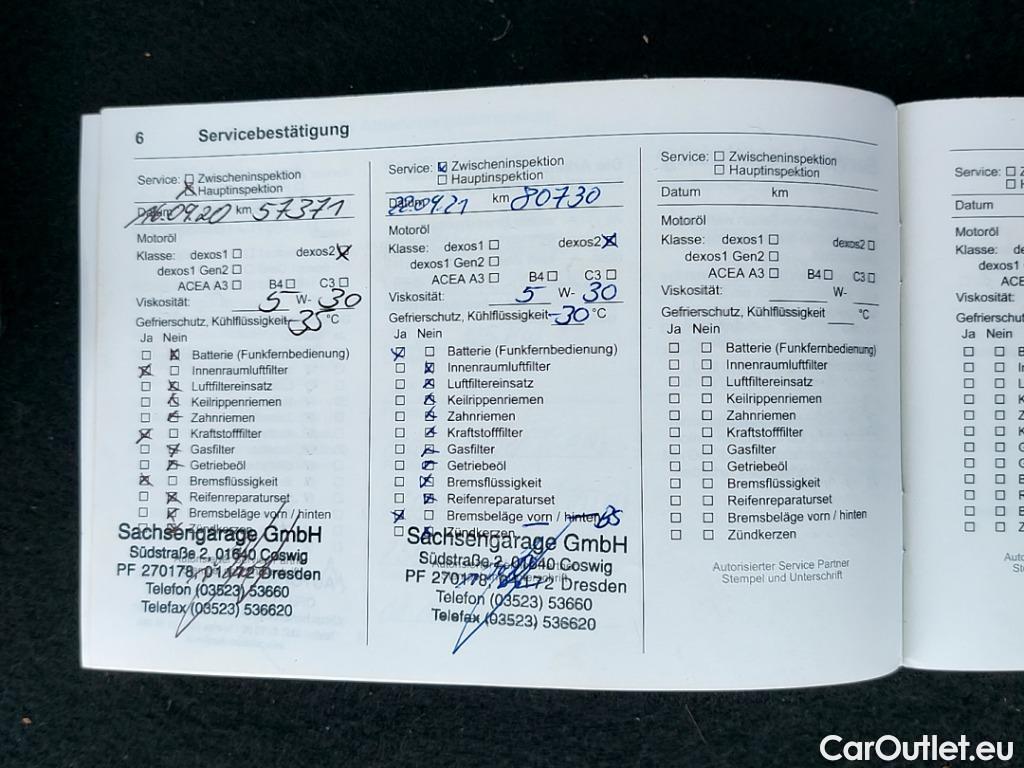 6 Servicebestätigung
Service: Zwischeninspektion
Hauptinspektion
Datum 16.09.20 km 57371
Motoröl
Klasse: dexos1 dexos2
dexos1 Gen2
ACEA A3 B4 C3
Viskosität: 5 W- 30
Gefrierschutz, Kühlflüssigkeit -35 °C
Ja Nein
Batterie (Funkfernbedienung)
Innenraumluftfilter
Luftfiltereinsatz
Keilrippenriemen
Zahnriemen
Kraftstofffilter
Gasfilter
Getriebeöl
Bremsflüssigkeit
Reifenreparaturset
Bremsbeläge vorn / hinten
Zündkerzen
Sachsengarage GmbH
Südstraße 2, 01640 Coswig
PF 270178, 01172 Dresden
Telefon (03523) 53660
Telefax (03523) 536620
Service: Zwischeninspektion
Hauptinspektion
Datum .09.21 km 80730
Motoröl
Klasse: dexos1 dexos2
dexos1 Gen2
ACEA A3 B4 C3
Viskosität: 5 W- 30
Gefrierschutz, Kühlflüssigkeit -30 °C
Ja Nein
Batterie (Funkfernbedienung)
Innenraumluftfilter
Luftfiltereinsatz
Keilrippenriemen
Zahnriemen
Kraftstofffilter
Gasfilter
Getriebeöl
Bremsflüssigkeit
Reifenreparaturset
Bremsbeläge vorn / hinten
Zündkerzen
Sachsengarage GmbH
Südstraße 2, 01640 Coswig
PF 270178, 01172 Dresden
Telefon (03523) 53660
Telefax (03523) 536620
Service: Zwischeninspektion
Hauptinspektion
Datum km
Motoröl
Klasse: dexos1 dexos2
dexos1 Gen2
ACEA A3 B4 C3
Viskosität: W-
Gefrierschutz, Kühlflüssigkeit °C
Ja Nein
Batterie (Funkfernbedienung)
Innenraumluftfilter
Luftfiltereinsatz
Keilrippenriemen
Zahnriemen
Kraftstofffilter
Gasfilter
Getriebeöl
Bremsflüssigkeit
Reifenreparaturset
Bremsbeläge vorn / hinten
Zündkerzen
Autorisierter Service Partner
Stempel und Unterschrift
Service:
Datum
Motoröl
Klasse: dexos1
dexos1
ACEA
Viskosität:
Gefrierschutz
Ja Nein
CarOutlet.eu